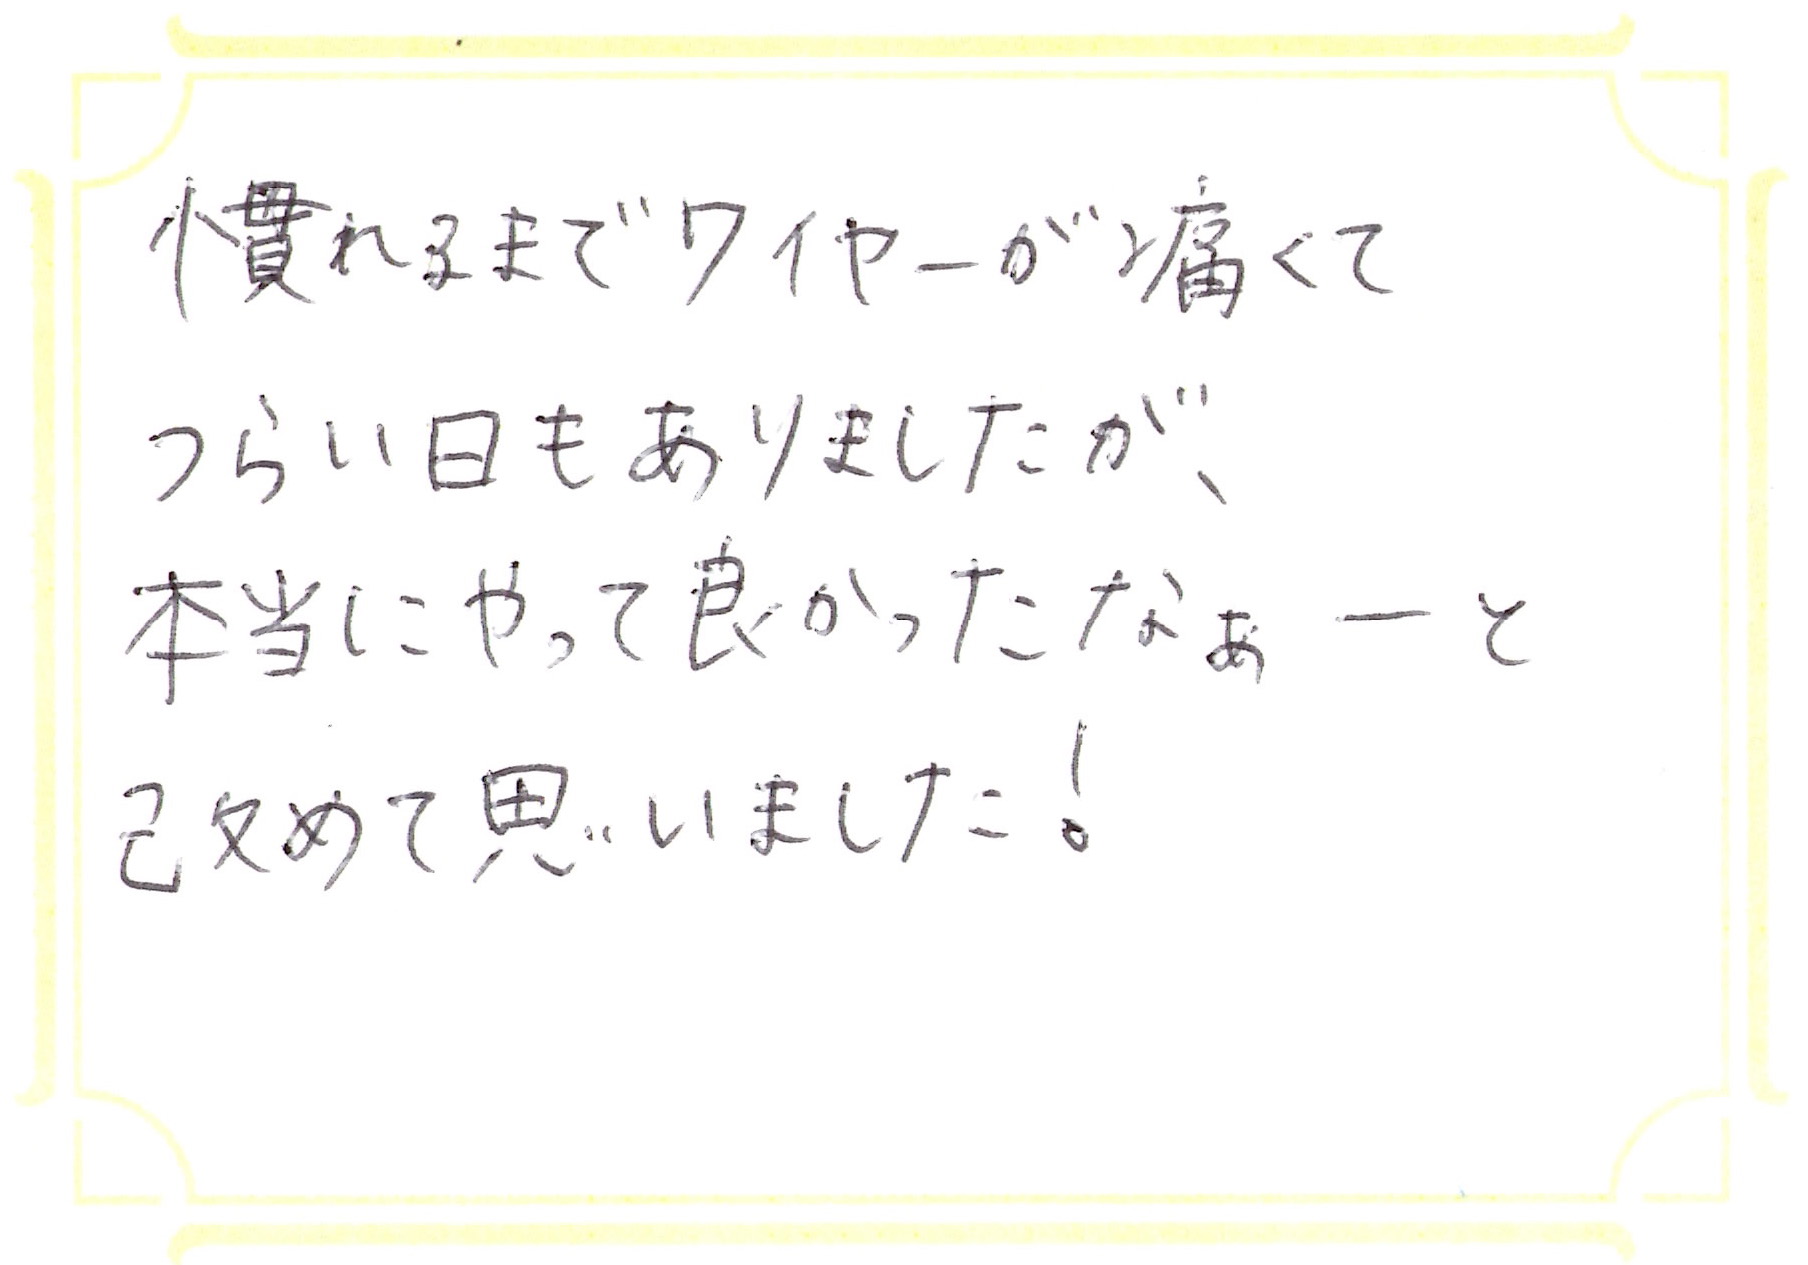 慣れるまでワイヤーが痛くて
つらい日もありましたが、
本当にやって良かったなぁーと
改めて思いました！